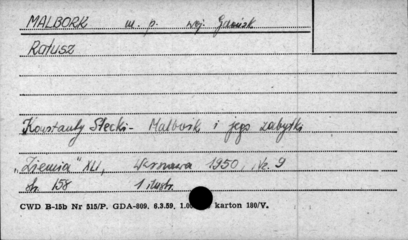 MALBORK m. p. woj. Gdańsk
Ratusz
Konstanty Stecki - Malbork i jego zabytki
"Ziemia" XLI, Warszawa 1950, Nr. 9
Str. 158 1 ilustr.
CWD B-15b Nr 515/P. GDA-809, 6.3.59, karton 180/V.